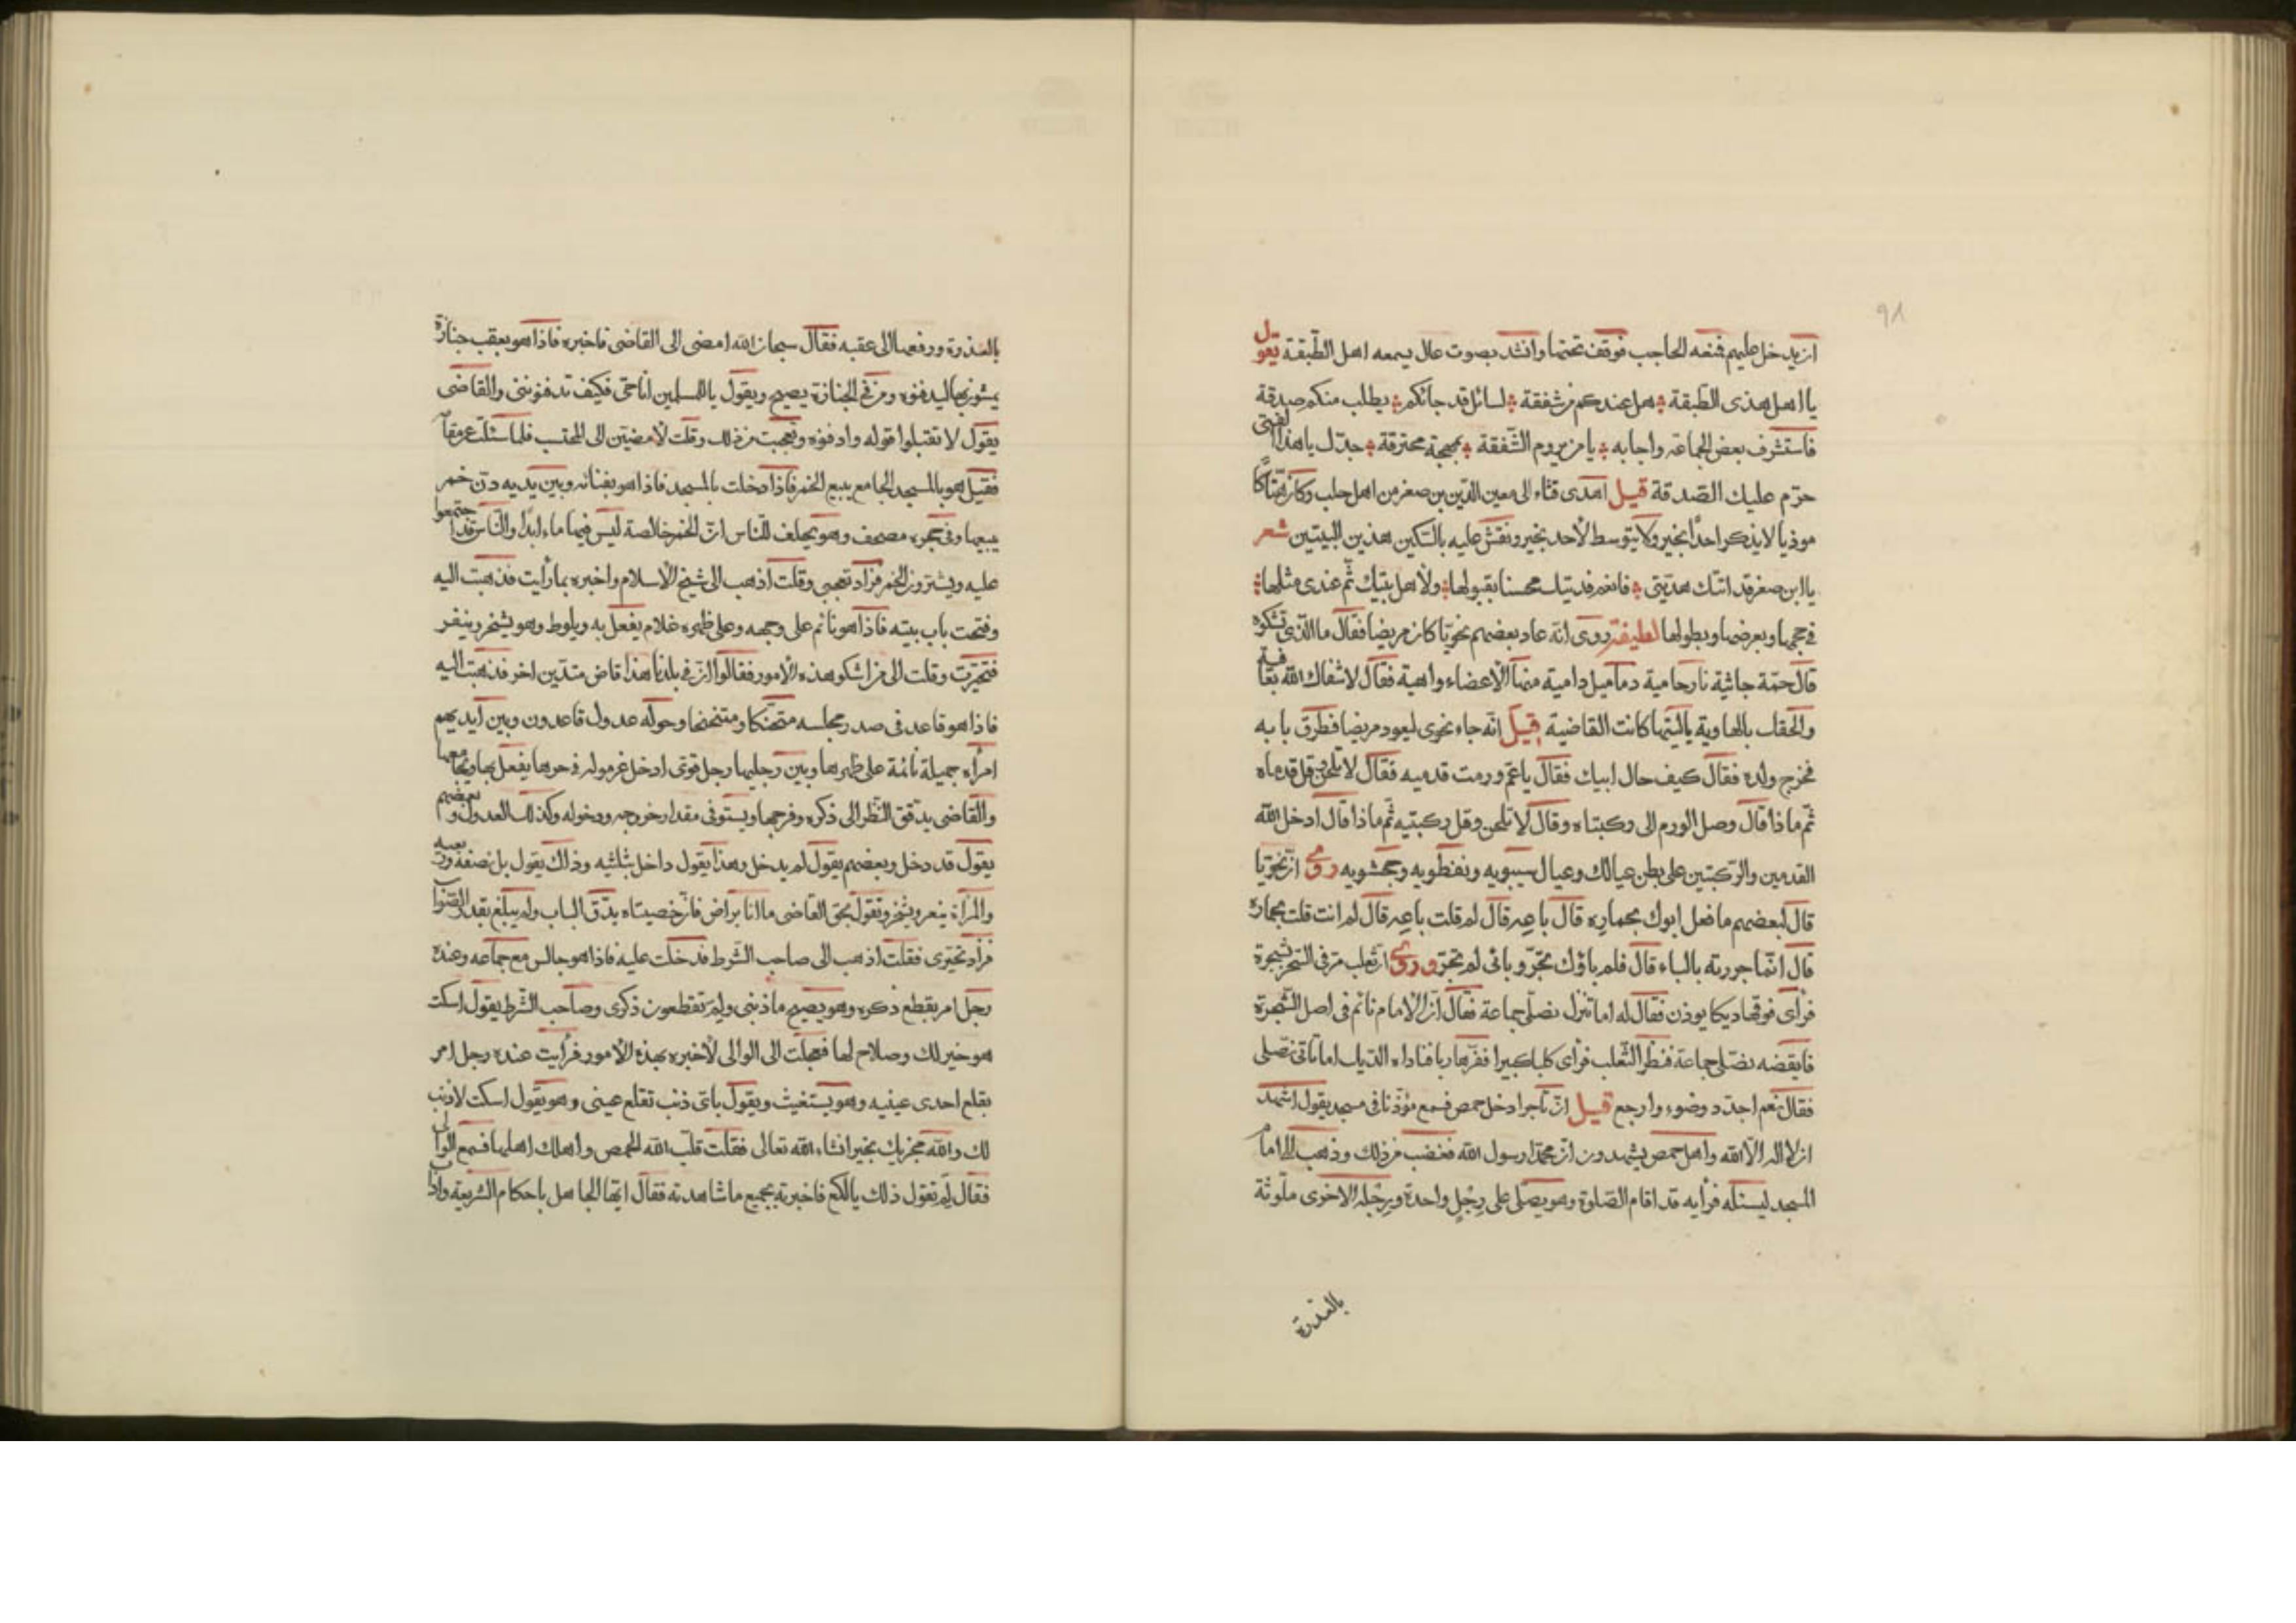 ٩٨
ان يدخل عليهم فمنعه الحاجب فوقف تحتها وانشد بصوت عال يسمعه اهل الطبقة يقول
يا اهل هذى الطبقة هل عندكم من شفقة لسائل قد جائكم يطلب منكم صدقة
فاستشرف بعض الجماعة واجابه يا من يروم الشفقة بمهجة محترقة جدّك يا هذا الفتى
حرّم عليك الصّدقة قيل اهدى قثاء الى معين الدّين بن صغر من اهل حلب وكان هتّاكًا
موذيا لا يذكر احدًا بخير ولا يتوسط لأحد بخير ونقش عليه بالسّكين هذين البيتين شعر
يا ابن صغر قد اتتك هديّتى فانعم فديتك محسنا بقبولها ولأهل بيتك ثمّ عندى مثلها
فى حجمها وبعرضها وبطولها لطيفة روى انه عاد بعضهم نحويّا كان مريضا فقال ما الّذى تشكوه
قال حمّة جاثية نار حامية دماميل دامية منها الأعضاء واهية فقال لا شفاك الله بعافية
والحقك بالهاوية يا ليتها كانت القاضية قيل انّه جاء نحوى ليعود مريضا فطرق بابه
فخرج ولده فقال كيف حال ابيك فقال يا عمّ ورمت قدميه فقال لا تلحن قل قدماه
ثمّ ماذا قال وصل الورم الى ركبتاه وقال لا تلحن وقل ركبتيه ثمّ ماذا قال ادخل الله
القدمين والرّكبتين على بطن عيالك وعيال سيبويه ونفطويه وجحشويه روى انّ نحويّا
قال لبعضهم ما فعل ابوك بحماره قال باعِه قال لم قلت باعِه قال لم انت قلت بحماره
قال انّما جررته بالباء قال فلم باؤك تجرّ وبائى لم تجرّ وروى انّ ثعلب مرّ فى السّحر بشجرة
فرأى فوقها ديكا يوذن فقال له اما تنزل نصلّى جماعة فقال انّ الامام نائم فى اصل الشّجرة
فايقضه نصلّى جماعة فنظر الثّعلب فرأى كلبا كبيرا ففرّ هاربا فناداه الديك اما تأتى نصلّى
فقال نعم اجدّد وضوء وارجع قيل انّ تاجرا دخل حمص فسمع مؤذّنا فى مسجد يقول اشهد
ان لا اله الا الله واهل حمص يشهدون انّ محمّدا رسول الله فغضب من ذلك وذهب الى امام
المسجد ليسئله فرأيه قد اقام الصّلوة وهو يصلّى على رِجْلٍ واحدة ورِجْله الاخرى ملوثة
بالعذرة
بالعذرة ورفعها الى عقبه فقال سبحان الله امضى الى القاضى فاخبره فاذا هو يعقب جنازة
يمشون بها ليدفنوه ومن فى الجنازة يصيح ويقول يا للمسلمين انا حىّ فكيف تدفنوننى والقاضى
يقول لا تقبلوا قوله وادفنوه وتعجبت من ذلك وقلت لأمضينّ الى المحتسب فلما سئلت عن مقامه
فقيل هو بالمسجد الجامع يبيع الخمر فاذا دخلت بالمسجد فاذا هو بفنائه وبين يديه دنّ خمر
يبيعها وفى حجره مصحف وهو يحلف للنّاس انّ الخمر خالصة ليس فيها ماء ابدًا والنّاس قد اجتمعوا
عليه ويشترون الخمر فزاد تعجبى وقلت اذهب الى شيخ الأسلام واخبره بما رأيت فذهبت اليه
وفتحت باب بيته فاذا هو نائم على وجهه وعلى ظهره غلام يفعل به ويلوط وهو يشخر وينخر
فتحيّرت وقلت الى من اشكو هذه الأمور فقالوا انّ فى بلدنا هذا قاض متديّن اخر فذهبت اليه
فاذا هو قاعد فى صدر مجلسه متحنّكا ومتنحنحا وحوله عدول قاعدون وبين ايديهم
امرأة جميلة نائمة على ظهرها وبين رجليها رجل قوىّ ادخل غرموله فى حرها يفعل بها ويجامعها
والقاضى يدقّق النّظر الى ذكره وفرجها ويستوفى مقدار خروجه ودخوله وكذلك العدول وبعضهم
يقول قد دخل وبعضهم يقول لم يدخل وهذا يقول داخل بثلثيه وذاك يقول بل نصفه وربعه
والمرأة ينعر ويشخر وتقول بحق القاضى ما انا براض فانّ خصيتاه يدّق الباب ولم يبلغ بعد
فزاد تحيّرى فقلت اذهب الى صاحب الشّرط فدخلت عليه فاذا هو جالس مع جماعه وعنده
رجل امر بقطع ذكره وهو يصيح ما ذنبى ولِمَ تقطعون ذكرى وصاحب الشّرط يقول اسكت
هو خير لك وصلاح لها فعجلت الى الوالى لأخبره بهذه الأمور فرأيت عنده رجل امر
بقلع احدى عينيه وهو يستغيث ويقول باىّ ذنب تقلع عينى وهو يقول اسكت لا ذنب
لك والله مجزيك بخير انشاء الله تعالى فقلت قلّب الله الحمص واهلك اهلها فسمع الوالى
فقال لِمَ تقول ذلك يا لكع فاخبرته بجميع ما شاهدته فقال ايّها الجاهل باحكام الشريعة واداب